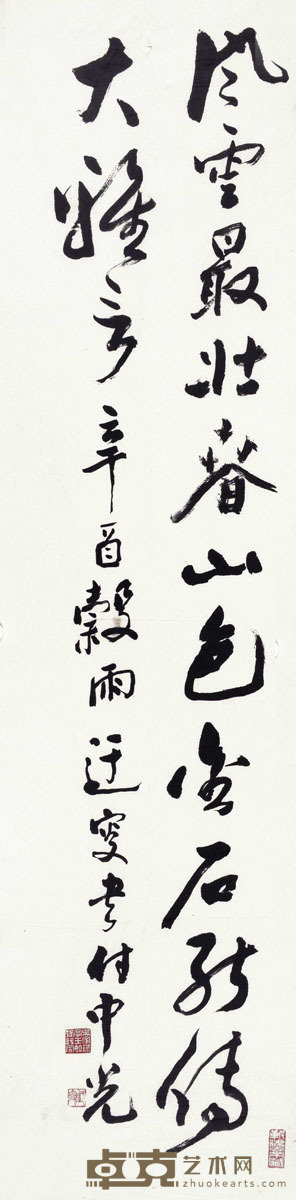 风云最壮春山色金石能传
大雅音辛酉穀雨迂叟书付中光
卓克艺术网
www.zhuokearts.com